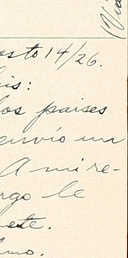 osto 14/26.
is:
los paises
envío un
A mi re-
rgo le
este.